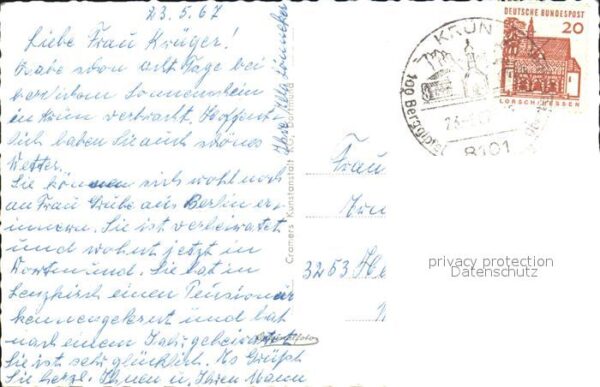 23.5.67
Liebe Frau Krüger!
Habe schon acht Tage bei
herrlichem Sonnenschein
in Krün verbracht. Hoffent-
lich haben Sie auch schönes
Wetter.
Sie können sich wohl noch
an Frau Grube aus Berlin er-
innern. Sie ist verheiratet
und wohnt jetzt in
Dortmund. Sie hat in
Lenzkirch einen Pensionär
kennengelernt und hat
nach einem Jahr geheiratet
Sie ist sehr glücklich. Es grüßt
Sie herzl. Ihnen u. Ihren Mann
Ihre Käthe
Cramers Kunstanstalt KG, Dortmund
DEUTSCHE BUNDESPOST
20
LORSCH/HESSEN
KRÜN
8101
Frau
3253 He
privacy protection
Datenschutz